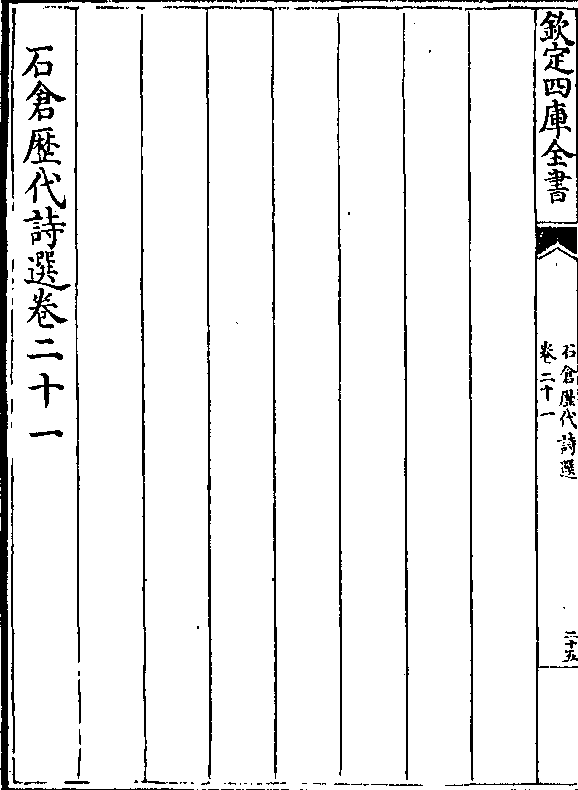 欽定四庫全書
石倉歷代詩選
卷二十一
二十五
石倉歷代詩選卷二十一